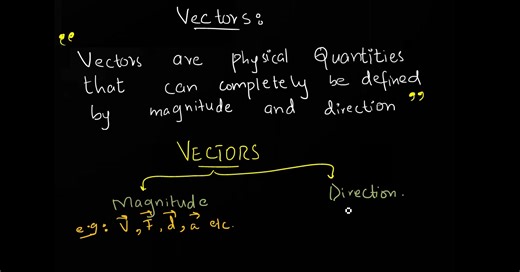 Vectors:
“Vectors are physical Quantities
that can completely be defined
by magnitude and direction”
VECTORS
Magnitude Direction.
e.g: V⃗, F⃗, d⃗, a⃗ etc.